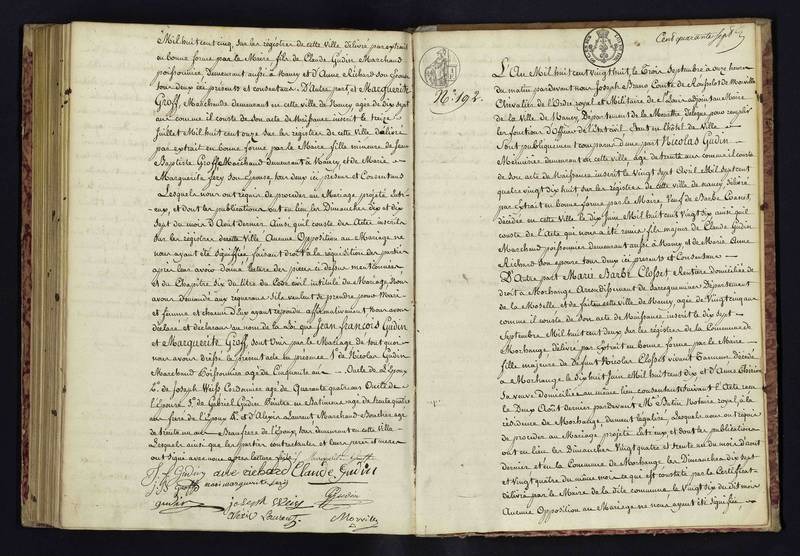 Mil huit cent cinq, sur les registres de cette ville délivré par extrait
en bonne forme par le Maire fils de Claude Gudin Marchand
poissonnier demeurant aussi à Nancy et d'Anne Richard son Epouse
tous deux ici présents et consentans. D'autre part et Marguerite
Groff, Marchande demeurant en cette ville de Nancy, agée de dix sept
ans comme il conste de son acte de Naissance inscrit le treize
Juillet Mil huit cent onze sur les registres de cette ville délivré
par extrait en bonne forme par le Maire fille mineure de Jean
Baptiste Groff Marchand demeurant à Nancy, et de Marie
Marguerite Féry son Epouse, tous deux ici présens et Consentans
Lesquels nous ont requis de procéder au Mariage projeté entr-
-eux, et dont les publications ont eu lieu, les Dimanches dix et dix
sept du mois d'Août dernier. Ainsi qu'il conste des Actes inscrits
sur les registres de cette Ville. Aucune Opposition au Mariage ne
nous ayant été signifiée, faisant droit à la réquisition des parties
après leur avoir donné lecture des pièces ci dessus mentionnées
et du Chapitre six du titre du Code civil intitulé du Mariage, Nous
avons demandé aux requerans s'ils veulent se prendre pour Mari
et femme et chacun d'eux ayant répondu affirmativement Nous avons
déclaré et déclarons au nom de la Loi que Jean François Gudin
et Marguerite Groff, sont Unis par le Mariage de tout quoi
nous avons dressé le présent acte en présence 1° de Nicolas Gudin
Marchand Poissonnier agé de Cinquante un Oncle de l'Epoux
2° de Joseph Weiss Cordonnier agé de Quarante quatre ans Oncle de
l'Epouse 3° de Gabriel Gudin Peintre en Batimens agé de trente quatre
ans frère de l'Epoux 4° et d'Alexis Laurent Marchand Boucher agé
de trente un ans Beaufrere de l'Epoux, tous demeurant en cette ville
Lesquels ainsi que les parties contractantes et leurs pères et mères
ont signé avec nous après lecture faite / Marguerite Groff
J. f. Gudin anne richard Claude Gudin
J. B. Groff mari marguerite feris
gudin joseph Weis G. Gudin
Alexis Laurent Morville
Cent quarante sept
N° 192.
L'An Mil huit cent vingt huit, le Trois Septembre à onze heures
du matin pardevant nous Joseph Bruno Comte de Morville
Chevalier de l'Ordre royal et Militaire de St Louis adjoint au Maire
de la Ville de Nancy, Département de la Meurthe, délégué pour remplir
les fonctions d'Officier de l'état civil. Sont en l'hôtel de Ville
Sont publiquement comparus d'une part Nicolas Gudin
Menuisier demeurant en cette ville, agé de trente ans comme il conste
de son acte de Naissance inscrit le Vingt sept Avril Mil sept cent
quatre vingt dix huit sur les registres de cette ville de Nancy, délivré
par Extrait en bonne forme par le Maire, Veuf de Barbe
décédée en cette Ville le dix Juin Mil huit cent Vingt six ainsi qu'il
conste de l'Acte qui nous a été remis fils majeur de Claude Gudin
Marchand poissonnier demeurant aussi à Nancy et de Marie Anne
Richard son épouse tous deux ici présents et Consentans
D'Autre part Marie Barbe Closset Rentière domiciliée de
droit à Morhange Arrondissement de Sarreguemines Département
de la Moselle, et de fait en cette ville de Nancy, agée de Vingt cinq ans
comme il conste de son Acte de Naissance inscrit le dix sept
Septembre Mil huit cent deux sur les registres de la Commune de
Morhange délivré par Extrait en bonne forme par le Maire
fille majeure de défunt Nicolas Closset vivant Tanneur décédé
à Morhange le dix huit Juin Mil huit cent dix et d'Anne
sa veuve domiciliée au même lieu consentante suivant l'Acte reçu
le Deux Août dernier pardevant Me Betin Notaire royal à la
résidence de Morhange dument légalisé, Lesquels nous ont requis
de procéder au Mariage projeté entr'eux et dont les publications
ont eu lieu les Dimanches Vingt quatre et trente un du mois d'Août
dernier et en la Commune de Morhange les Dimanches dix sept
et Vingt quatre du même mois ce qui est constaté par le Certificat
délivré par le Maire de la dite commune le Vingt six du dit mois
Aucune Opposition au Mariage ne nous ayant été Signifiée,